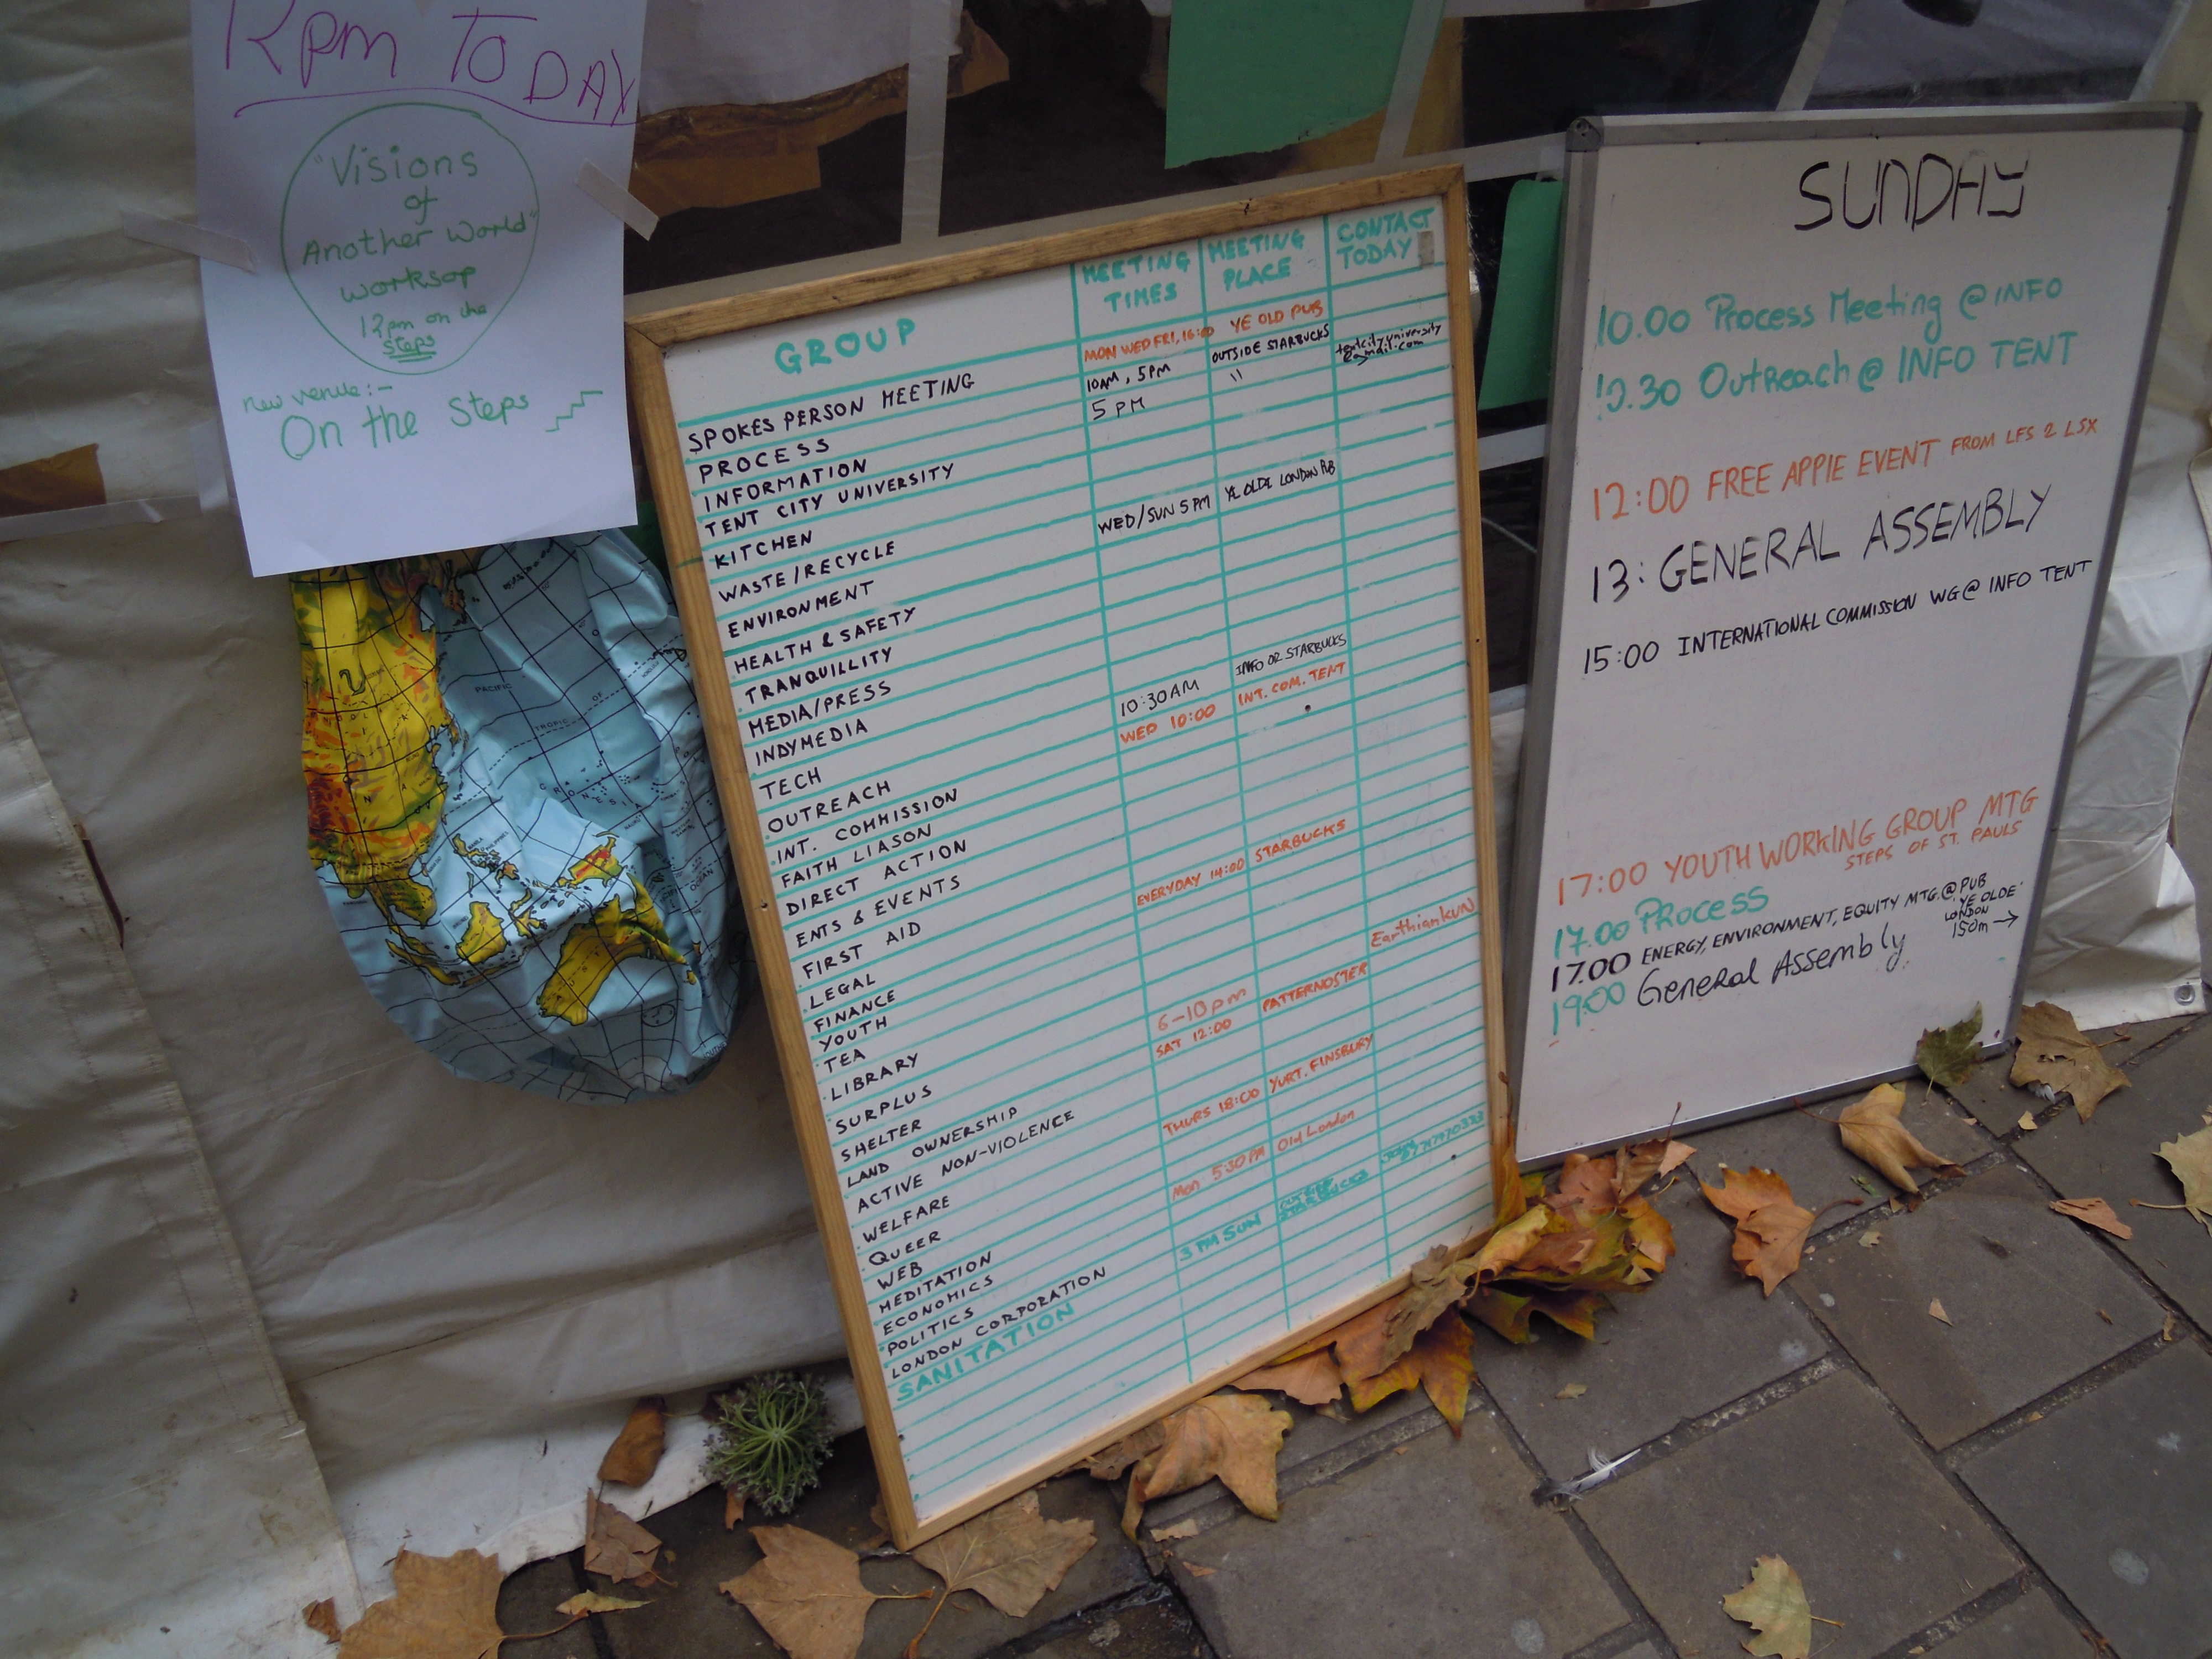 12pm TODAY
"Visions
of
Another World"
worksop
12pm on the
steps
new venue:-
On the Steps
GROUP
MEETING TIMES
MEETING PLACE
CONTACT TODAY
SPOKES PERSON MEETING MON WED FRI, 16:00 YE OLD PUB
PROCESS 10AM, 5PM OUTSIDE STARBUCKS
INFORMATION 5 PM "
TENT CITY UNIVERSITY tentcity.university@gmail.com
KITCHEN
WASTE/RECYCLE
ENVIRONMENT WED/SUN 5PM YE OLDE LONDON PUB
HEALTH & SAFETY
TRANQUILLITY
MEDIA/PRESS
INDYMEDIA
TECH
OUTREACH 10:30AM INFO OR STARBUCKS
INT. COMMISSION WED 10:00 INT. COM. TENT
FAITH LIASON
DIRECT ACTION
ENTS & EVENTS
FIRST AID
LEGAL
FINANCE EVERYDAY 14:00 STARBUCKS
YOUTH
TEA
LIBRARY Earthian kuN
SURPLUS
SHELTER 6-10pm
LAND OWNERSHIP SAT 12:00 PATTERNOSTER
ACTIVE NON-VIOLENCE
WELFARE
QUEER THURS 18:00 YURT. FINSBURY
WEB
MEDITATION
ECONOMICS Mon 5:30PM Old London
POLITICS
LONDON CORPORATION 3 PM SUN STARBUCKS
SANITATION
SUNDAY
10.00 Process Meeting @ INFO
10.30 Outreach @ INFO TENT
12:00 FREE APPIE EVENT FROM LFS 2 LSX
13: GENERAL ASSEMBLY
15:00 INTERNATIONAL COMMISSION WG @ INFO TENT
17:00 YOUTH WORKING GROUP MTG
STEPS OF ST. PAULS
17.00 PROCESS
17.00 ENERGY, ENVIRONMENT, EQUITY MTG. @ PUB
YE OLDE
LONDON
150m →
19:00 General Assembly
PACIFIC
TROPIC
OF
OCEAN